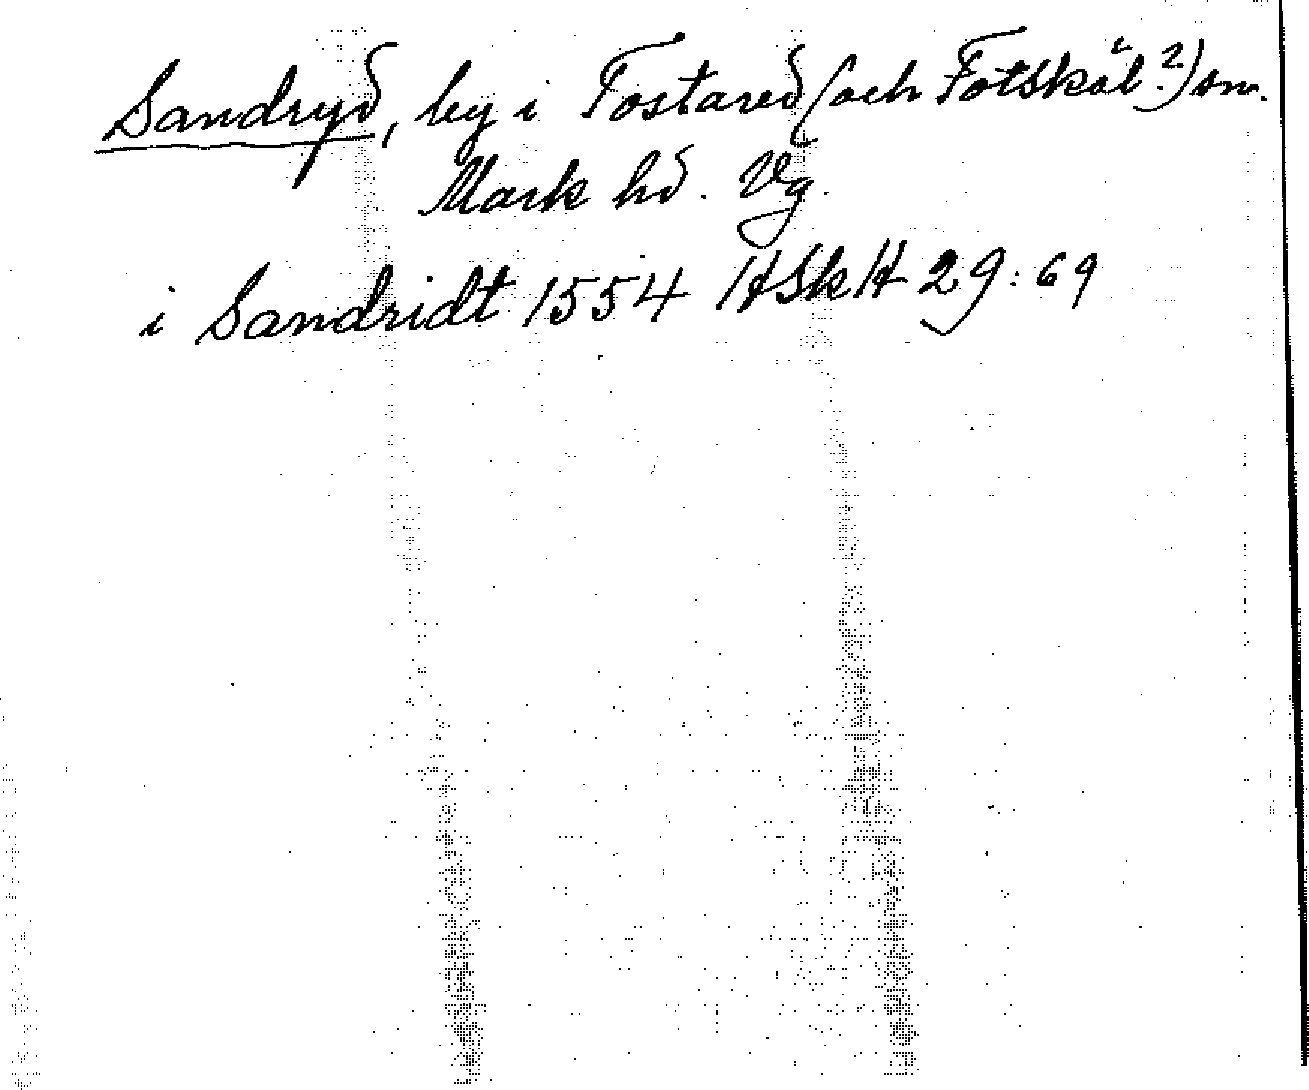 Sandryd, by i Tostared (och Fotskäl?) sn.
Mark hd. Vg.
i Sandridt 1554 HSkH 29:69